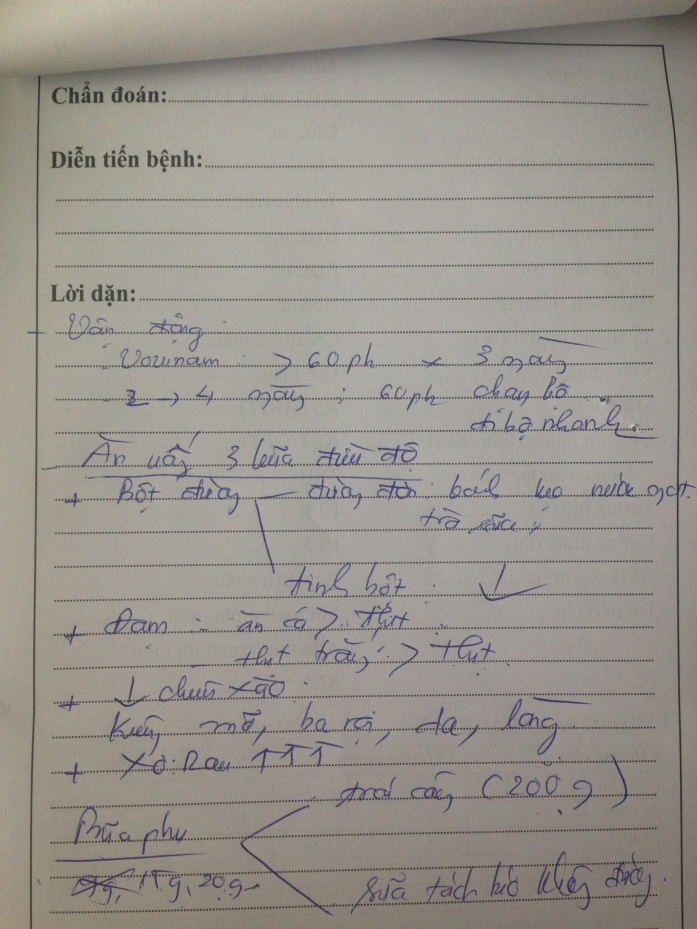 Chẩn đoán:
Diễn tiến bệnh:
Lời dặn:
- Vận động
Vovinam : > 60 ph × 3 ngày
→ 4 ngày : 60 ph chạy bộ
đi bộ nhanh
- Ăn uống 3 bữa điều độ
+ Bột đường — đường đơn bánh kẹo nước ngọt.
trà sữa,
tinh bột ↓
+ Đạm : ăn cá > thịt
- thịt trắng > thịt
+ ↓ chiên xào
Kiêng mỡ, ba rọi, da, lòng
+ Xơ: Rau ↑↑↑
trái cây (200 g)
Bữa phụ
20g
sữa tách béo không đường.